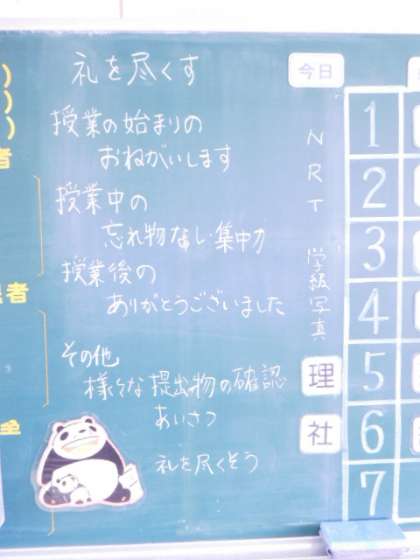 礼を尽くす
授業の始まりの
おねがいします
授業中の
忘れ物なし・集中力
授業後の
ありがとうございました
その他
様々な提出物の確認
あいさつ
礼を尽くそう
今日
NRT
学級写真
理
社
1
2
3
4
5
6
7
者
者